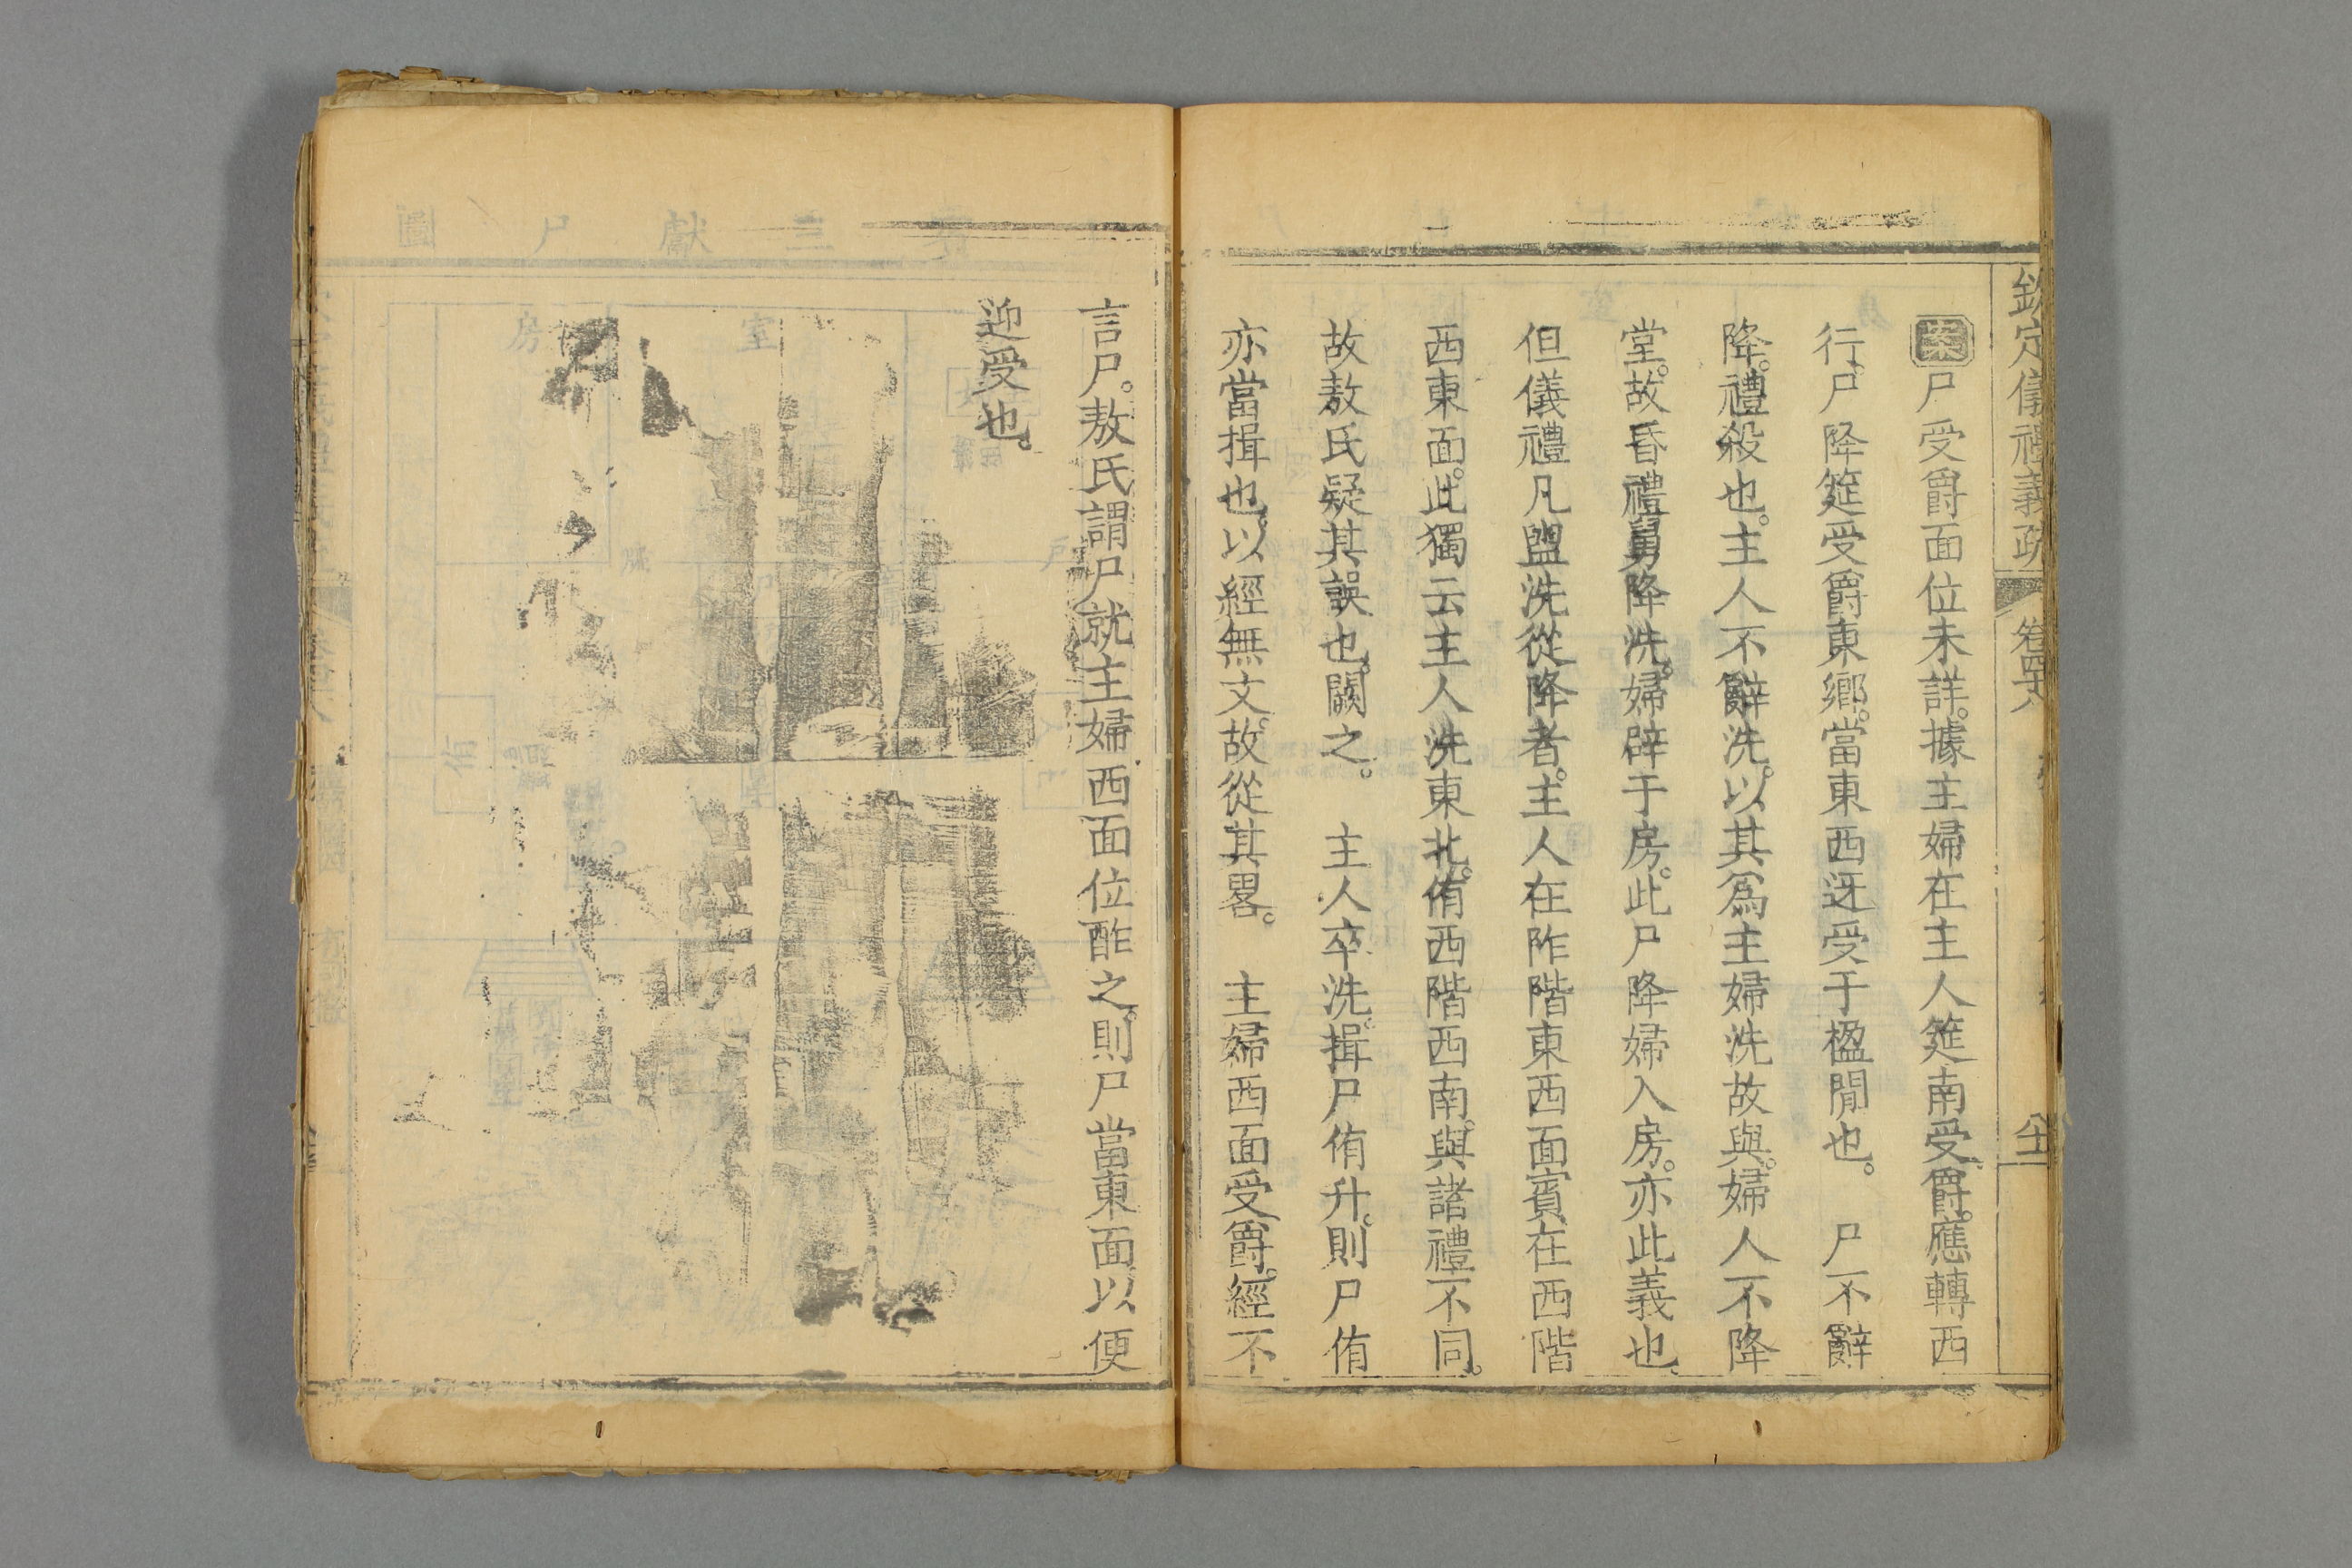 欽定儀禮義疏 卷四十八
案尸受爵面位未詳。據主婦在主人筵南受爵。應轉西
行。尸降筵受爵東鄉。當東西迓受于楹閒也。 尸不辭
降。禮殺也。主人不辭洗。以其為主婦洗故與。婦人不降
堂。故昏禮舅降洗。婦辟于房。此尸降婦入房。亦此義也。
但儀禮凡盥洗從降者。主人在阼階東西面賓在西階
西東面。此獨云主人洗東北。侑西階西南。與諸禮不同。
故敖氏疑其誤也。闕之。 主人卒洗。揖尸侑升。則尸侑
亦當揖也。以經無文。故從其畧。 主婦西面受爵。經不
言尸。敖氏謂尸就主婦西面位酢之。則尸當東面。以便
迎受也。